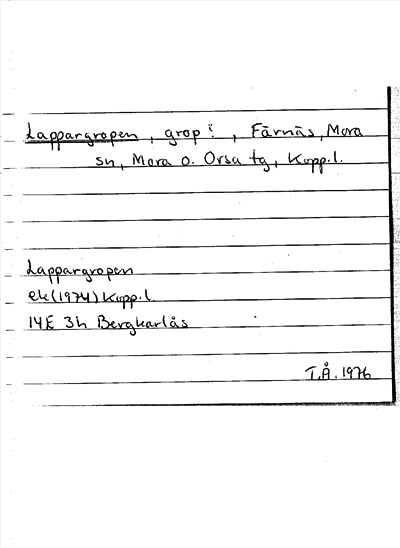 Lappargropen, grop?, Färnäs, Mora
sn, Mora o. Orsa tg, Kopp.l.
Lappargropen
ek (1974) Kopp.l
14E 3h Bergkarlås
T.Å. 1976